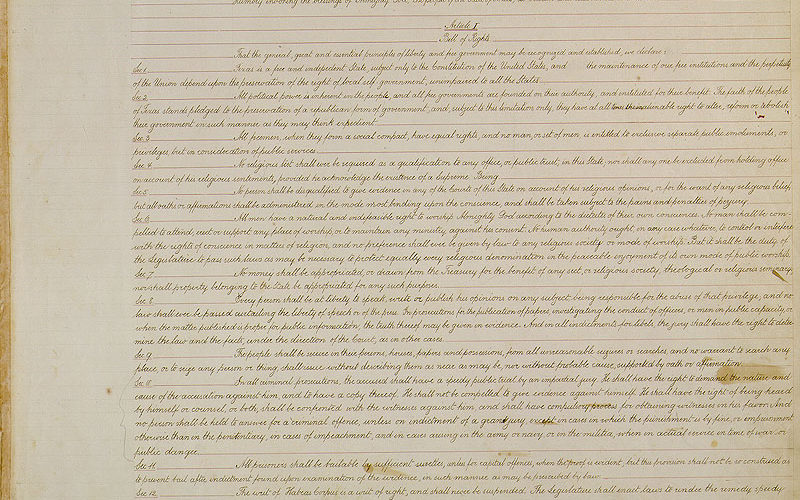 humbly invoking the blessings of Almighty God, the people of the State of Texas, do
Article I
Bill of Rights
That the general, great and essential principles of liberty and free government may be recognized and established, we declare:
Sec 1. Texas is a free and independent State, subject only to the Constitution of the United States, and the maintenance of our free institutions and the perpetuity
of the Union depend upon the preservation of the right of local self government, unimpaired to all the States.
Sec 2. All political power is inherent in the people, and all free governments are founded on their authority, and instituted for their benefit. The faith of the people
of Texas stands pledged to the preservation of a republican form of government, and, subject to this limitation only, they have at all times the inalienable right to alter, reform or abolish
their government in such manner as they may think expedient.
Sec 3. All freemen, when they form a social compact, have equal rights, and no man, or set of men, is entitled to exclusive separate public emoluments, or
privileges, but in consideration of public services.
Sec 4. No religious test shall ever be required as a qualification to any office, or public trust, in this State; nor shall any one be excluded from holding office
on account of his religious sentiments, provided he acknowledge the existence of a Supreme Being.
Sec 5. No person shall be disqualified to give evidence in any of the Courts of this State on account of his religious opinions, or for the want of any religious belief,
but all oaths or affirmations shall be administered in the mode most binding upon the conscience, and shall be taken subject to the pains and penalties of perjury.
Sec 6. All men have a natural and indefeasible right to worship Almighty God according to the dictates of their own consciences. No man shall be com-
pelled to attend, erect or support any place of worship, or to maintain any ministry against his consent. No human authority ought, in any case whatever, to control or interfere
with the rights of conscience in matters of religion, and no preference shall ever be given by law to any religious society or mode of worship. But it shall be the duty of
the Legislature to pass such laws as may be necessary to protect equally every religious denomination in the peaceable enjoyment of its own mode of public worship.
Sec. 7 No money shall be appropriated, or drawn from the Treasury for the benefit of any sect, or religious society, theological or religious seminary,
nor shall property belonging to the State be appropriated for any such purposes.
Sec. 8 Every person shall be at liberty to speak, write or publish his opinions on any subject, being responsible for the abuse of that privilege; and no
law shall ever be passed curtailing the liberty of speech or of the press. In prosecutions for the publication of papers investigating the conduct of officers, or men in public capacity, or
when the matter published is proper for public information, the truth thereof may be given in evidence. And in all indictments for libels, the jury shall have the right to deter-
mine the law and the facts, under the direction of the Court, as in other cases.
Sec. 9 The people shall be secure in their persons, houses, papers and possessions, from all unreasonable seizures or searches, and no warrant to search any
place, or to seize any person or thing, shall issue without describing them as near as may be, nor without probable cause, supported by oath or affirmation.
Sec. 10 In all criminal prosecutions, the accused shall have a speedy public trial by an impartial jury. He shall have the right to demand the nature and
cause of the accusation against him, and to have a copy thereof. He shall not be compelled to give evidence against himself. He shall have the right of being heard
by himself or counsel, or both, shall be confronted with the witnesses against him, and shall have compulsory process for obtaining witnesses in his favor. And
no person shall be held to answer for a criminal offense, unless on indictment of a grand jury, except in cases in which the punishment is by fine, or imprisonment
otherwise than in the penitentiary, in cases of impeachment, and in cases arising in the army or navy, or in the militia, when in actual service in time of war or
public danger.
Sec 11. All prisoners shall be bailable by sufficient sureties, unless for capital offences, when the proof is evident; but this provision shall not be so construed as
to prevent bail after indictment found upon examination of the evidence, in such manner as may be prescribed by law.
Sec. 12 The writ of Habeas Corpus is a writ of right, and shall never be suspended. The Legislature shall enact laws to render the remedy speedy